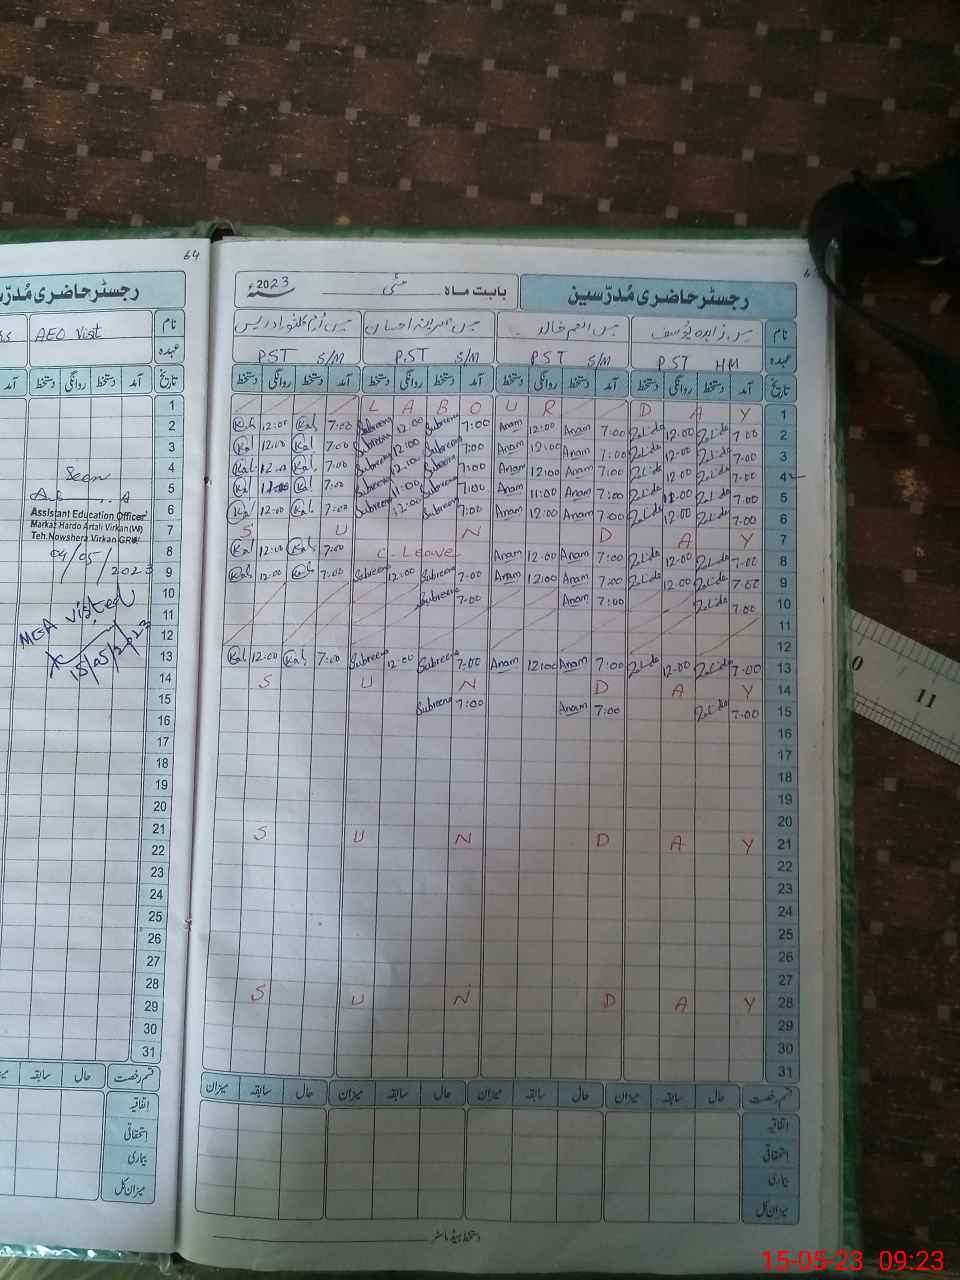 64
رجسٹر حاضری مُدرّسین
بابت ماہ مئی 2023ء
رجسٹر حاضری مُدرّس
نام
AEO Visit
عہدہ
تاریخ آمد دستخط روانگی دستخط آمد
نام مس زاہدہ یُوسف مس انعم خالد مس سبرینہ احسان مس اُم کلثوم ادریس
عہدہ PST HM PST S/M PST S/M PST S/M
تاریخ آمد دستخط روانگی دستخط آمد دستخط روانگی دستخط آمد دستخط روانگی دستخط آمد دستخط روانگی دستخط
1 L A B O U R D A Y 1
2 Kal 12:00 Kal 7:00 Subreena 12:00 Subreena 7:00 Anam 12:00 Anam 7:00 Zahida 12:00 Zahida 7:00 2
3 Kal 12:00 Kal 7:00 Subreena 12:00 Subreena 7:00 Anam 12:00 Anam 7:00 Zahida 12:00 Zahida 7:00 3
4 Kal 12:00 Kal 7:00 Subreena 12:00 Subreena 7:00 Anam 12:00 Anam 7:00 Zahida 12:00 Zahida 7:00 4
5 Kal 11:00 Kal 7:00 Subreena 11:00 Subreena 7:00 Anam 11:00 Anam 7:00 Zahida 11:00 Zahida 7:00 5
6 Kal 12:00 Kal 7:00 Subreena 12:00 Subreena 7:00 Anam 12:00 Anam 7:00 Zahida 12:00 Zahida 7:00 6
7 S U N D A Y 7
8 Kal 12:00 Kal 7:00 C-Leave Anam 12:00 Anam 7:00 Zahida 12:00 Zahida 7:00 8
9 Kal 12:00 Kal 7:00 Subreena 12:00 Subreena 7:00 Anam 12:00 Anam 7:00 Zahida 12:00 Zahida 7:00 9
10 Subreena 7:00 Anam 7:00 Zahida 7:00 10
11 11
12 12
13 Kal 12:00 Kal 7:00 Subreena 12:00 Subreena 7:00 Anam 12:00 Anam 7:00 Zahida 12:00 Zahida 7:00 13
14 S U N D A Y 14
15 Subreena 7:00 Anam 7:00 Zahida 7:00 15
16 16
17 17
18 18
19 19
20 20
21 S U N D A Y 21
22 22
23 23
24 24
25 25
26 26
27 27
28 S U N D A Y 28
29 29
30 30
31 31
Seen
Assistant Education Officer
Markaz Hardo Artali Virkan(W)
Teh.Nowshera Virkan GRW
04/05/2023
M&A visited
15/05/2023
قسم رخصت حال سابقہ
اتفاقیہ
استحقاقی
بیماری
میزان کل
قسم رخصت حال سابقہ میزان حال سابقہ میزان حال سابقہ میزان حال سابقہ میزان
اتفاقیہ
استحقاقی
بیماری
میزان کل
دستخط ہیڈ ماسٹر
0
11
15-05-23 09:23